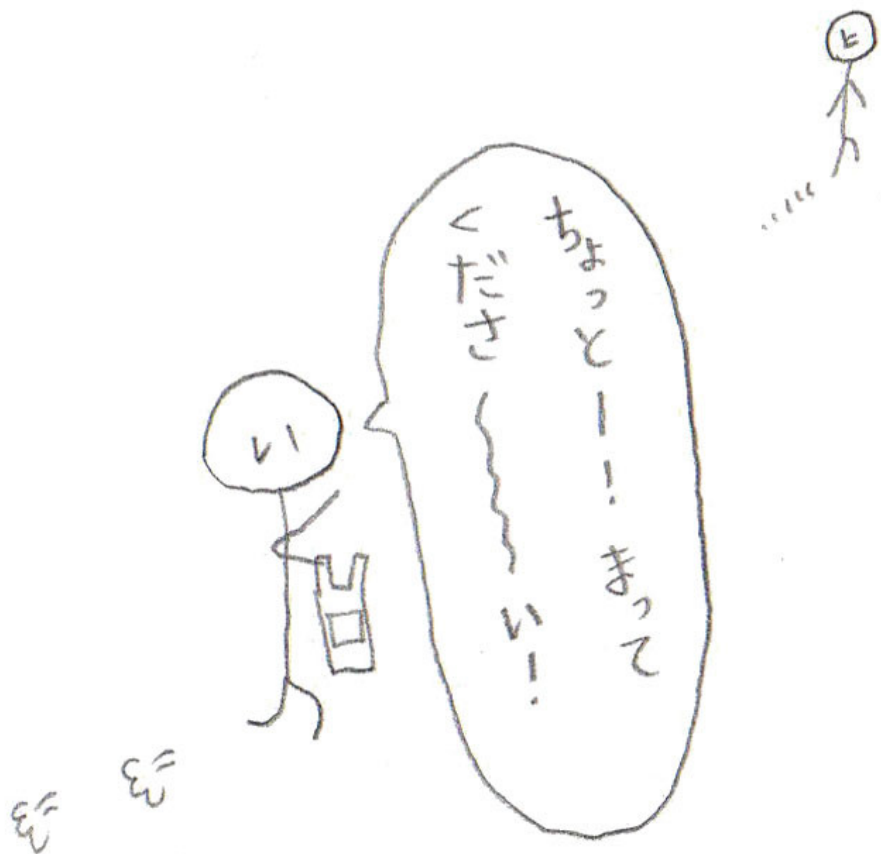 ちょっとー！まって
くださ〜〜〜い！
い
と